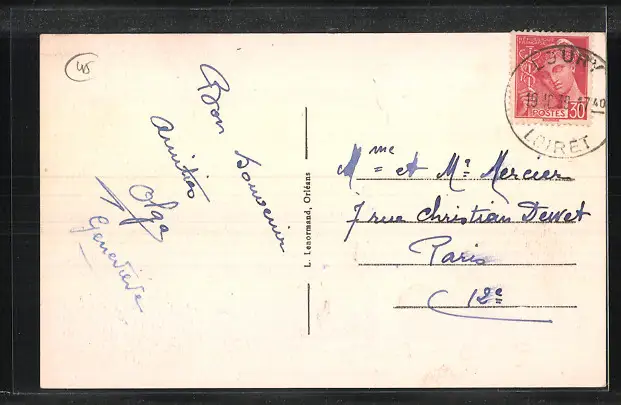 45
Bon souvenir
Amitiés
Olga
Geneviève
L. Lenormand, Orléans
RÉPUBLIQUE FRANÇAISE
POSTES 30
LOURY
17 40
LOIRET
Mme et Mr Mercier
7 rue Christian Dewet
Paris
12e